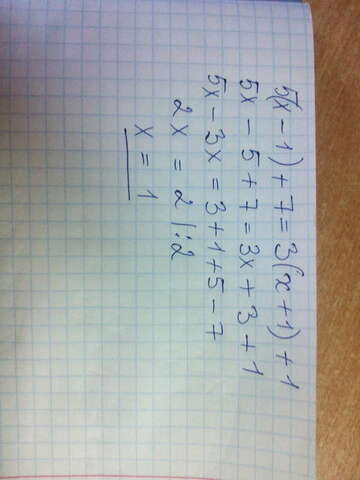 5(x - 1) + 7 = 3(x + 1) + 1
5x - 5 + 7 = 3x + 3 + 1
5x - 3x = 3 + 1 + 5 - 7
2x = 2 |:2
x = 1